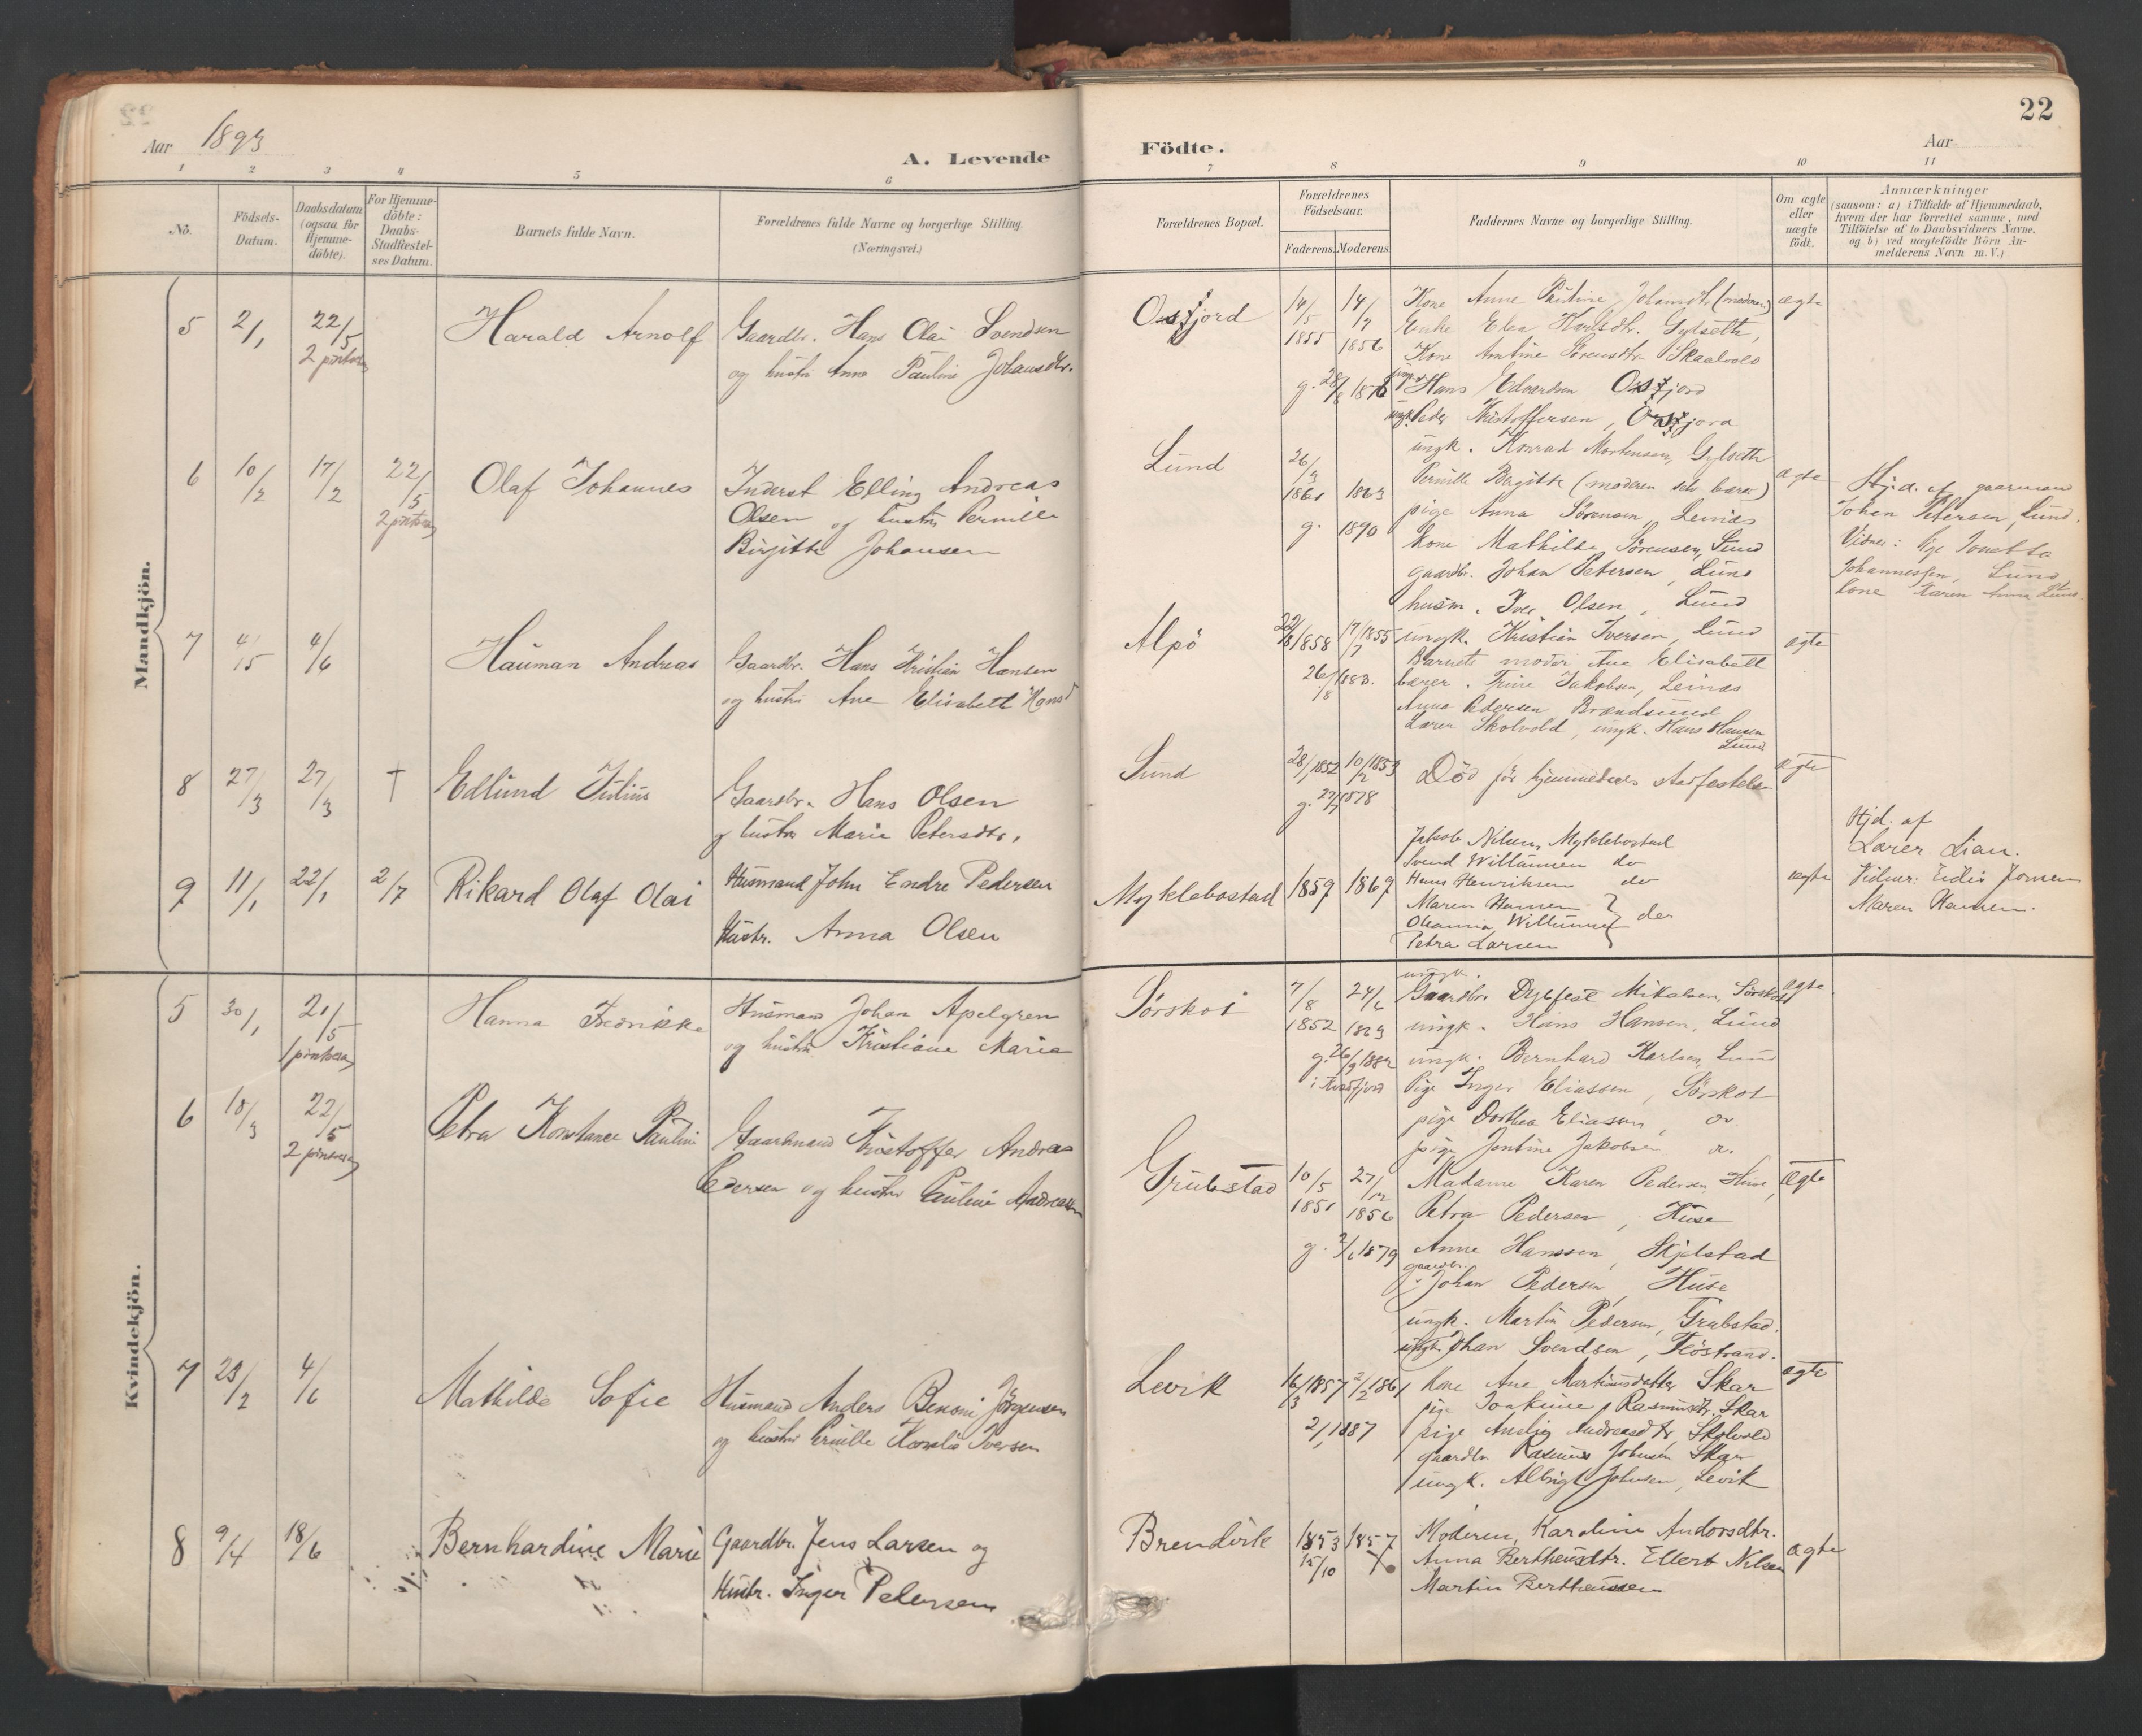 22
Aar 1893
A. Levende
Födte.
Aar
1 2 3 4 5 6 7 8 9 10 11
Nö.
Födsels-
Datum.
Daabsdatum
(ogsaa for
Hjemme-
döbte).
For Hjemme-
döbte:
Daabs-
Stadfæstel-
ses Datum.
Barnets fulde Navn.
Forældrenes fulde Navne og borgerlige Stilling
(Næringsvei.)
Forældrenes Bopæl.
Forældrenes
Födselsaar.
Faderens. Moderens.
Faddernes Navne og borgerlige Stilling.
Om ægte
eller
uægte
födt.
Anmærkninger
(saasom: a) i Tilfælde af Hjemmedaab,
hvem der har forrettet samme, med
Tilföielse af to Daabsvidners Navne.
og b) ved uægtefödte Börn An-
melderens Navn m.V.)
Mandkjön.
5 2/1 22/5
Harald Arnolf
Gaardbr. Hans Olai Svendsen
og hustru Anne Pauline Johansdtr.
14/5 1855
14/7 1856
g. 28/8 1878
Kone Anne Pauline Johansdtr (moderen)
Enke Elen Karlsdtr. Gylseth,
Kone Antine Sörensdtr Skaalvold
Hans Edvardsen
ungk. Peder Kristoffersen,
ungk. Konrad Mortensen, Gylseth
ægte
6 10/2 17/2 22/5
Olaf Johannes
Inderst Elling Andreas
Olsen og hustru Pernille
Birgitte Johansen
Lund
1861 1863
g. 1890
Pernille Birgitte (moderen selv bærer)
pige Anna Sörensen, Leinæs
Kone Mathilde Sörensen, Lund
gaardbr. Johan Petersen, Lund
husm. Iver Olsen, Lund
ungk. Kristian Iversen, Lund
ægte
Hj.d. af gaarmand
Johan Petersen, Lund.
Vidner: Pige Jonetta
Johannessen, Lund
Kone Karen Anna Lund.
7 4/5 4/6
Hauman Andreas
Gaardbr. Hans Kristian Hansen
og hustru Ane Elisabeth Hansd
Alpö
1858 1855
Barnets moder Ane Elisabeth
bærer. Trine Jakobsen, Leinæs
Anna Pedersen Brændsund
Lærer Skolvold, ungk. Hans Hansen
Lund
ægte
8 27/3 27/3 †
Edlund Julius
Gaardbr. Hans Olsen
og hustru Marie Petersdtr.
Lund
28/1 1852 10/2 1853
g. 27/7 1878
Död för hjemmedaabs stadfestelse
ægte
9 11/1 22/1 2/7
Rikard Olaf Olai
Husmand John Endre Pedersen
Hustr. Anna Olsen
Myklebostad
1859 1867
Jakob Nilsen, Myklebostad
Svend Willumsen do
Hans Henriksen do
Maren Hansen
Oleanna Willumsen
do
Petra Larsen
ægte
Hjd. af
Lærer Lian.
Vidner: Eidis Jonsen
Maren Hansen.
Kvindekjön.
5 30/1 21/5
Hanna Fredrikke
Husmand Johan Apelgren
og hustru Kristiane Maria
Sörskot
7/8 1852 24/6 1863
ungk.
Gaardbr. Dyrfest Mikalsen, Sörskot
ungk. Hans Hansen, Lund
ungk. Bernhard Karlsen, Lund
Pige Inger Eliassen, Sörskot
pige Dorthea Eliassen, do.
pige Jentine Jakobsen do.
ægte
6 18/3 22/5
Petra Konstance Pauline
Gaardmand Kristoffer Andreas
Pedersen og hustru Pauline Andreasen
Grubstad
10/5 1851 27/12 1856
g. 2/6 1879
Madame Karen Pedersen, Huse,
Petra Pedersen, Huse
Anne Hanssen, Skjelstad
gaardbr.
Johan Pedersen, Huse
ungk. Martin Pedersen, Grubstad.
ungk. Johan Svendsen, Flöstrand.
ægte
7 23/2 4/6
Mathilde Sofie
Husmand Anders Benoni Jörgensen
og hustru Pernille Kornelia Iversen
Levik
16/3 1857 2/2 1861
2/1 1887
Kone Ane Martinusdatter Skar
pige Joakime Rasmusdtr. Skar
pige Andrea Andreasdtr, Skolvold
gaardbr. Rasmus Johnsen Skar
ungk. Albrigt Johnsen, Levik
ægte
8 9/4 18/6
Bernhardine Marie
Gaardbr. Jens Larsen og
Hustr. Inger Petersen
Brendvik
1853 1857
15/10
Moderen, Karoline Andorsdtr.
Anna Bertheusdtr. Ellert Nilsen
Martin Bertheussen
ægte